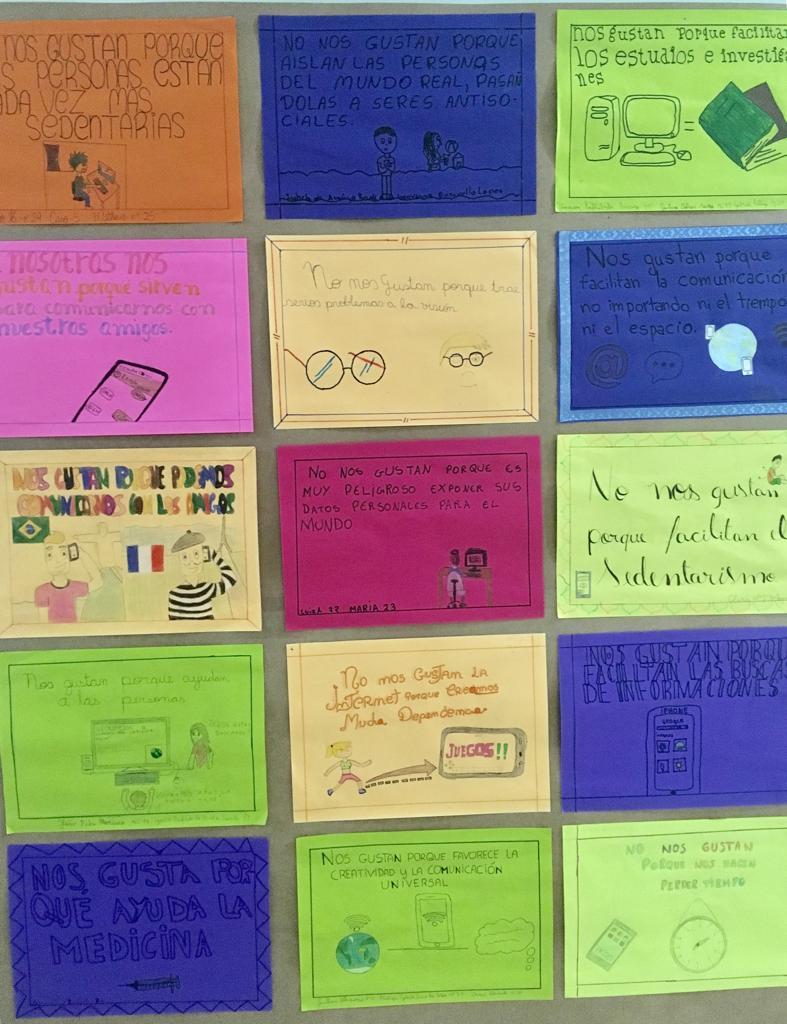 NOS GUSTAN PORQUE
S PERSONAS ESTAN
ADA VEZ MAS
SEDENTARIAS
NO NOS GUSTAN PORQUE
AISLAN LAS PERSONAS
DEL MUNDO REAL, PASAN
DOLAS A SERES ANTISO-
CIALES.
nos gustan porque facilitan
los estudios e investiga
nes
=
nosotros nos
gustan porque sirven
para comunicarnos con
nuestros amigos.
No nos gustan porque trae
serios problemas a la visión
Nos gustan porque
facilitan la comunicación
no importando ni el tiempo
ni el espacio.
@
NOS GUSTAN PORQUE PODEMOS
COMUNICARNOS CON LOS AMIGOS
NO NOS GUSTAN PORQUE ES
MUY PELIGROSO EXPONER SUS
DATOS PERSONALES PARA EL
MUNDO
MARIA 23
No nos gustan
porque facilitan el
Sedentarismo
Nos gustan porque ayudan
a las personas
No nos GUSTAN LA
INTERNET PORQUE CREAMOS
Mucha Dependencia
JUEGOS!!
NOS GUSTAN PORQUE
FACILITAN LAS BUSCA
DE INFORMACIONES
IPHONE
GOOGLE
NOS GUSTA POR
QUE AYUDA LA
MEDICINA
NOS GUSTAN PORQUE FAVORECE LA
CREATIVIDAD Y LA COMUNICACIÓN
UNIVERSAL
NO NOS GUSTAN
PORQUE NOS HACEN
PERDER TIEMPO